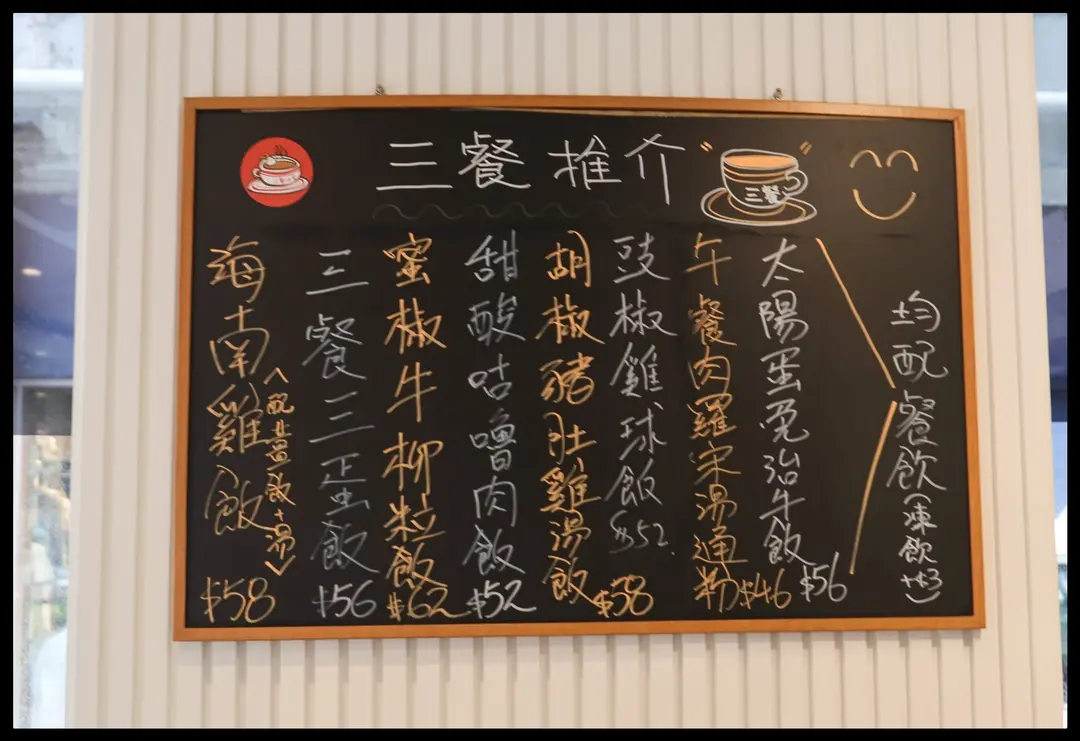 三餐推介
三餐
海南雞飯
<配薑飯+湯>
$58
三餐三蛋飯
$56
蜜椒牛柳粒飯
$62
甜酸咕嚕肉飯
$52
胡椒豬肚雞湯飯
$58
豉椒雞球飯
$52
午餐肉羅宋湯通粉
$46
太陽蛋免治牛飯
$56
均配餐飲(凍飲+$3)